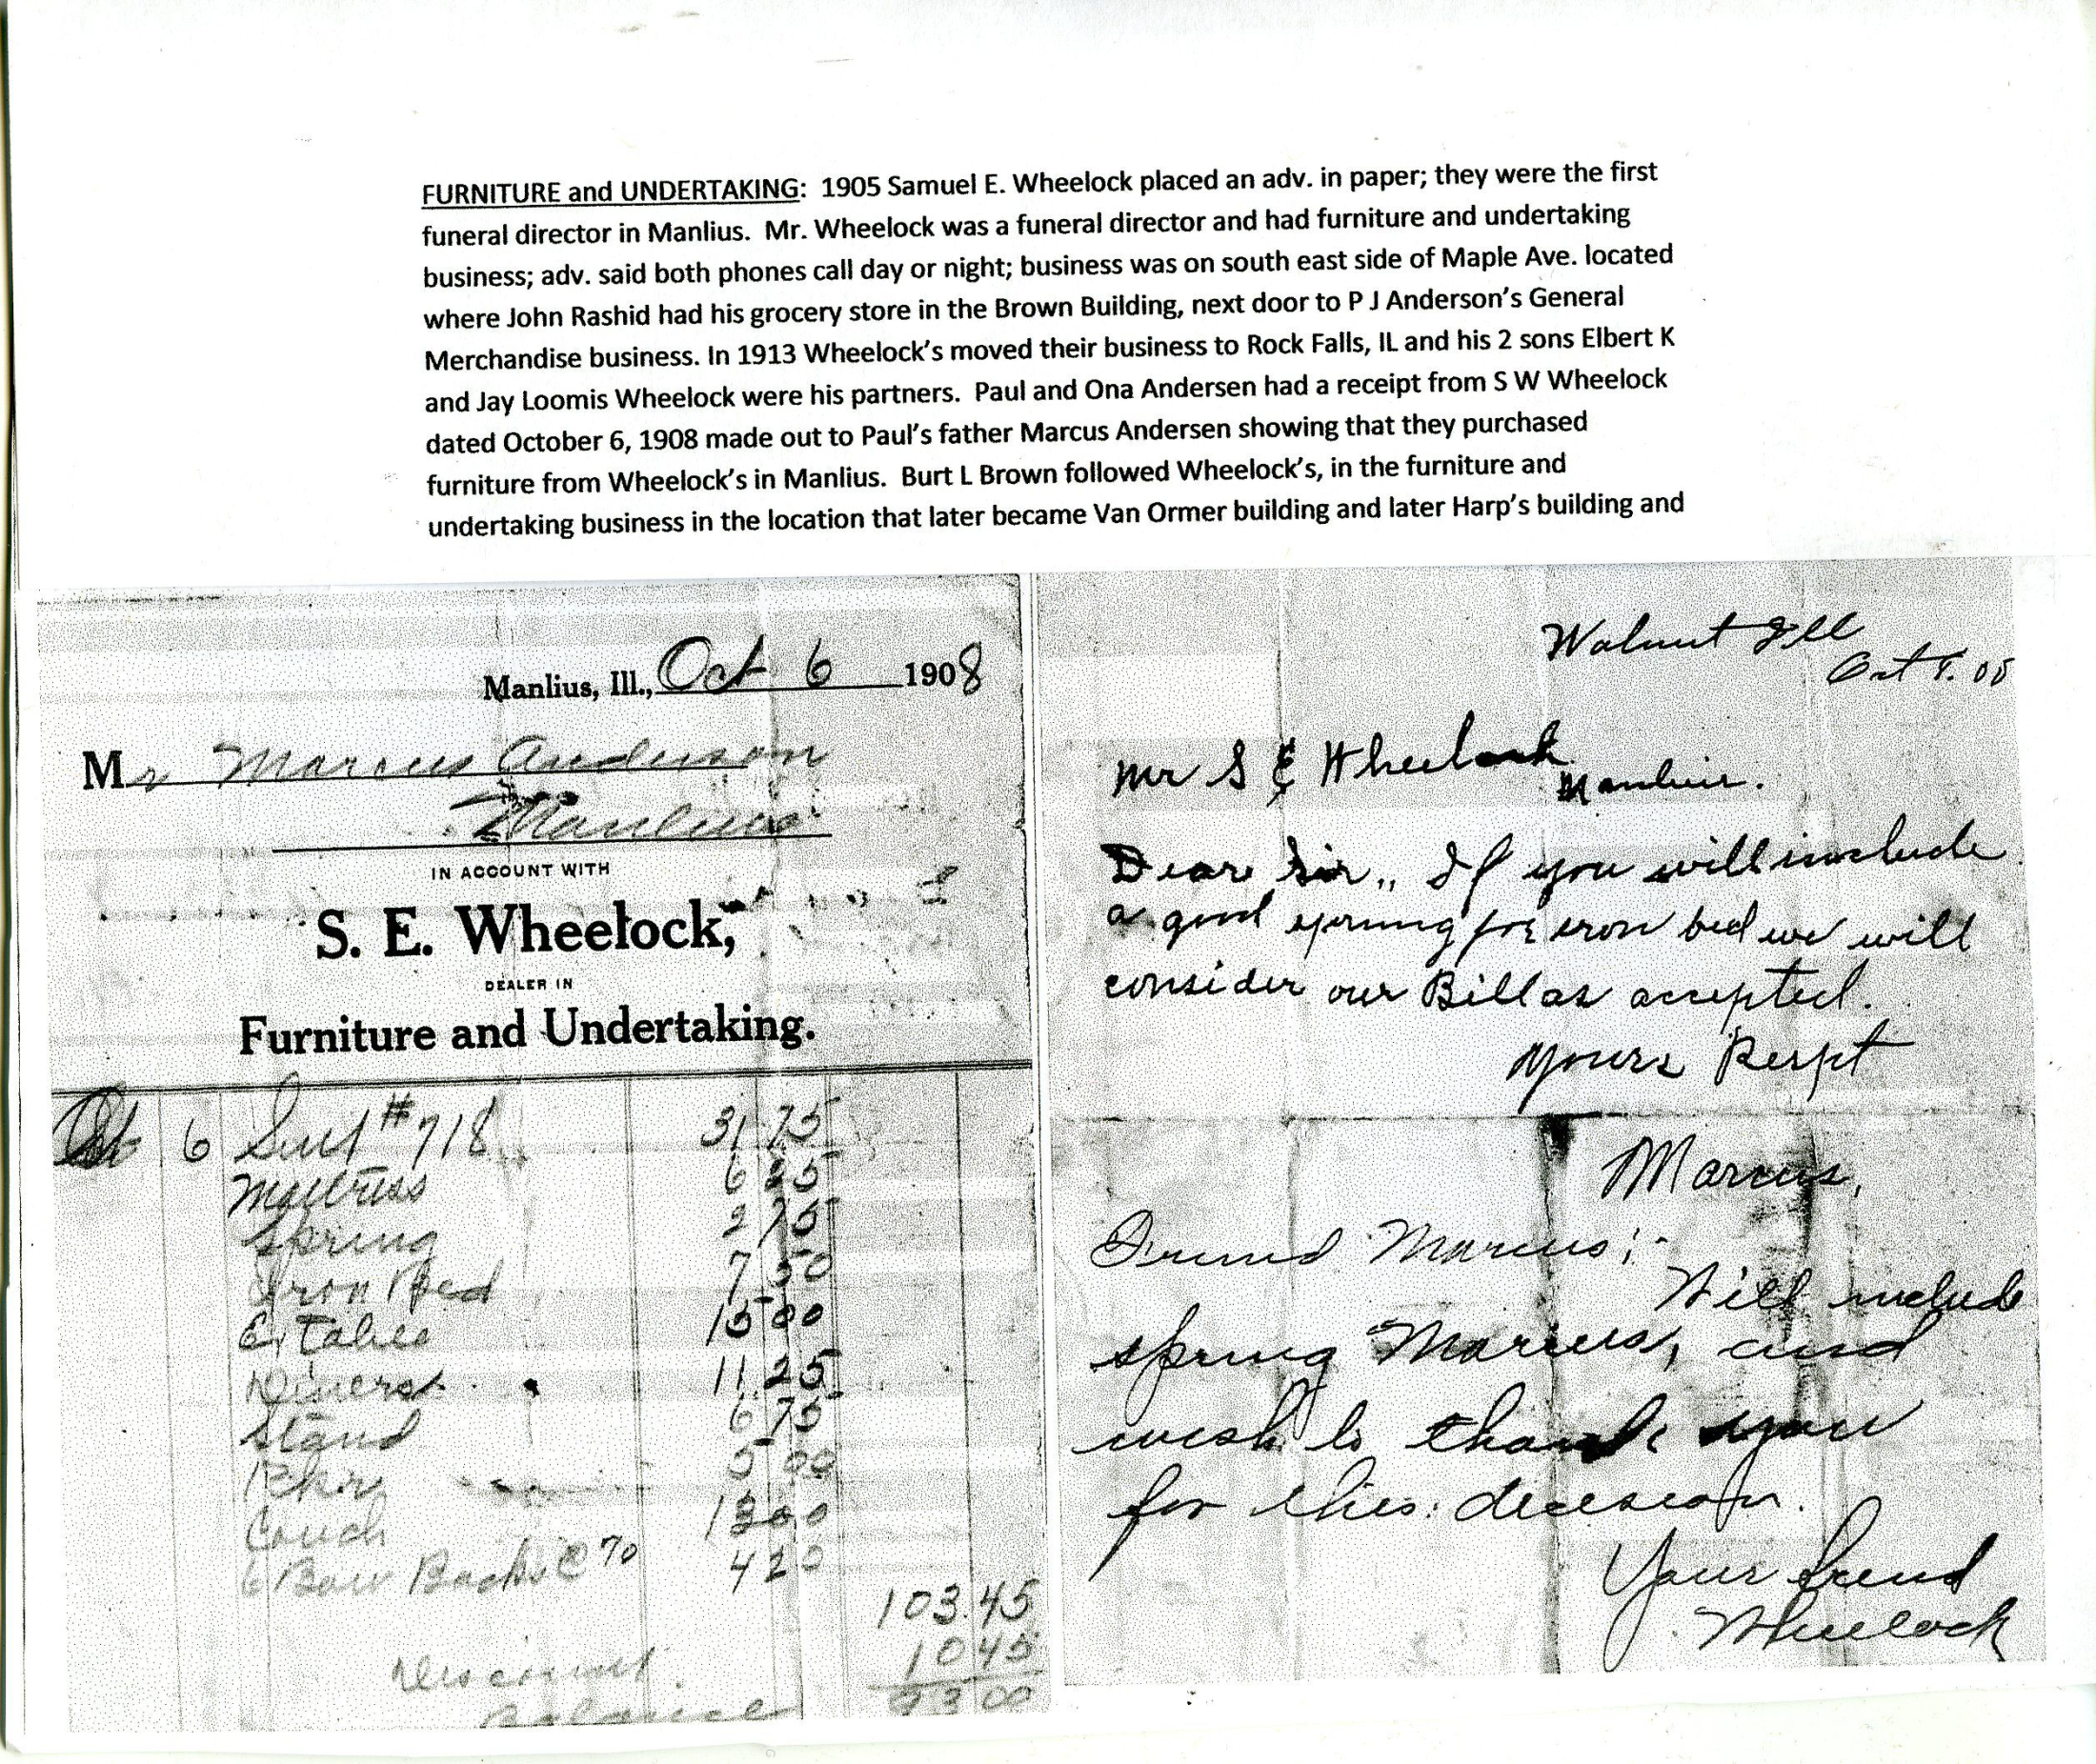 FURNITURE and UNDERTAKING: 1905 Samuel E. Wheelock placed an adv. in paper; they were the first
funeral director in Manlius. Mr. Wheelock was a funeral director and had furniture and undertaking
business; adv. said both phones call day or night; business was on south east side of Maple Ave. located
where John Rashid had his grocery store in the Brown Building, next door to P J Anderson's General
Merchandise business. In 1913 Wheelock's moved their business to Rock Falls, IL and his 2 sons Elbert K
and Jay Loomis Wheelock were his partners. Paul and Ona Andersen had a receipt from S W Wheelock
dated October 6, 1908 made out to Paul's father Marcus Andersen showing that they purchased
furniture from Wheelock's in Manlius. Burt L Brown followed Wheelock's, in the furniture and
undertaking business in the location that later became Van Ormer building and later Harp's building and
Manlius, Ill., Oct 6 1908
Mr Marcus Anderson
Manlius
IN ACCOUNT WITH
S. E. Wheelock,
DEALER IN
Furniture and Undertaking.
Oct 6 Suit #718 31 75
Mattress 6 25
Spring 2 75
Iron Bed 7 50
Ex Table 15 00
Diners 11 25
Stand 6 75
5 00
Couch 13 00
6 Bow Backs @ 70 4 20
103.45
Discount 10 45
Balance 93 00
Walnut Ill
Oct 8. 08
Mr S E Wheelock
Manlius.
Dear Sir,, If you will include
a good spring for iron bed we will
consider our Bill as accepted.
Yours Respt
Marcus,
Friend Marcus;-
Will include
spring Marcus, and
wish to thank you
for this decision.
Your friend
Wheelock